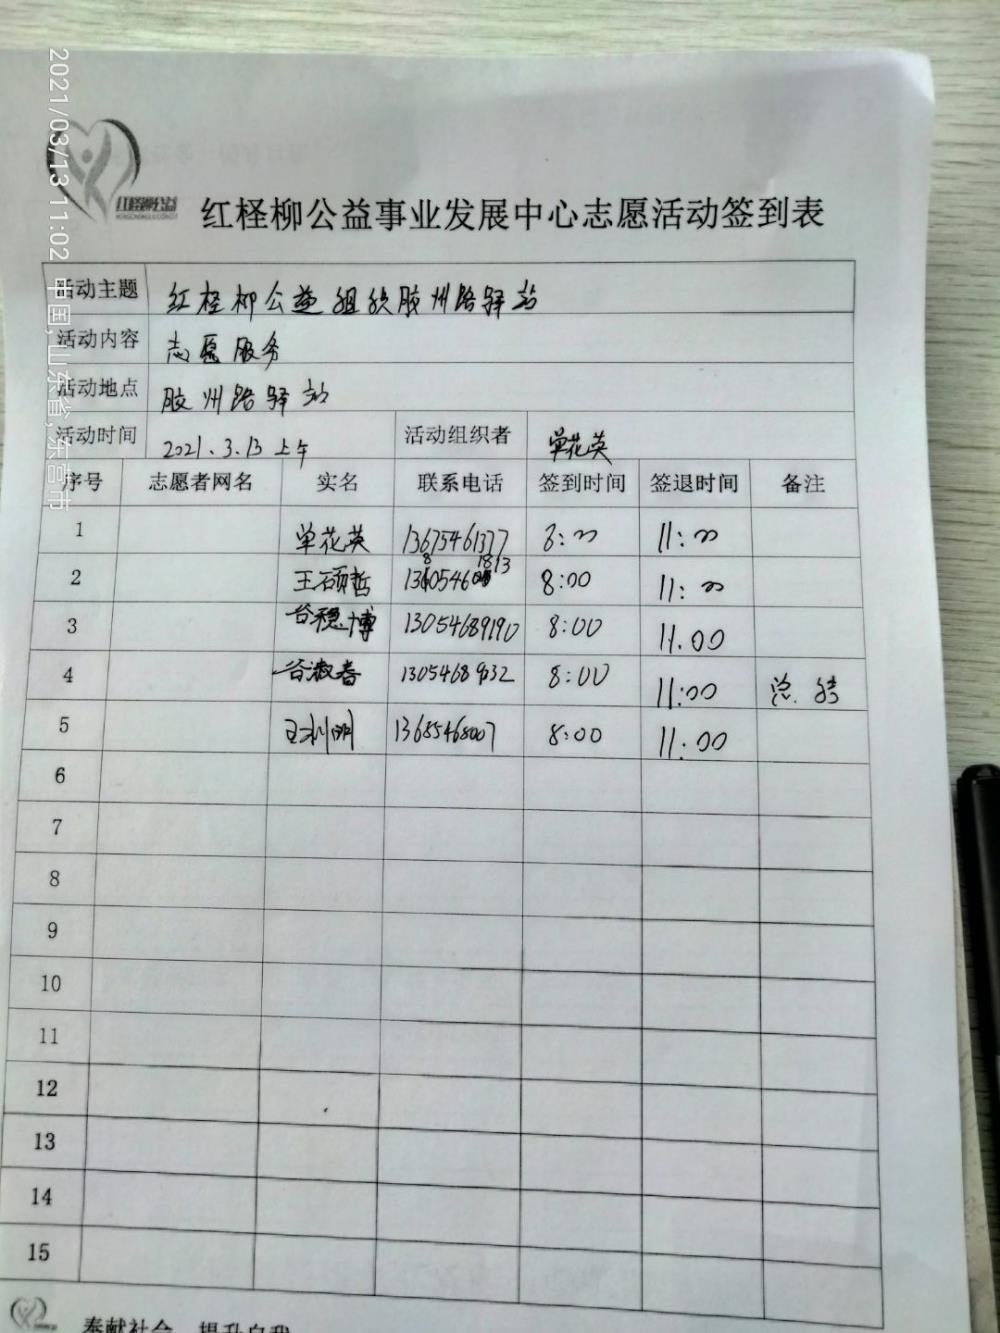 2021/03/13 11:02 中国,山东省,东营市
红柽柳公益
红柽柳公益事业发展中心志愿活动签到表
活动主题 红柽柳公益组织胶州路驿站
活动内容 志愿服务
活动地点 胶州路驿站
活动时间 2021.3.13上午 活动组织者 单花英
序号 志愿者网名 实名 联系电话 签到时间 签退时间 备注
1 单花英 13675461377 8:00 11:00
2 王硕哲 8:00 11:00
3 谷稳博 13054689190 8:00 11.00
4 谷淑春 8:00 11:00
5 王利明 13685468007 8:00 11:00
6
7
8
9
10
11
12
13
14
15
奉献社会 提升自我